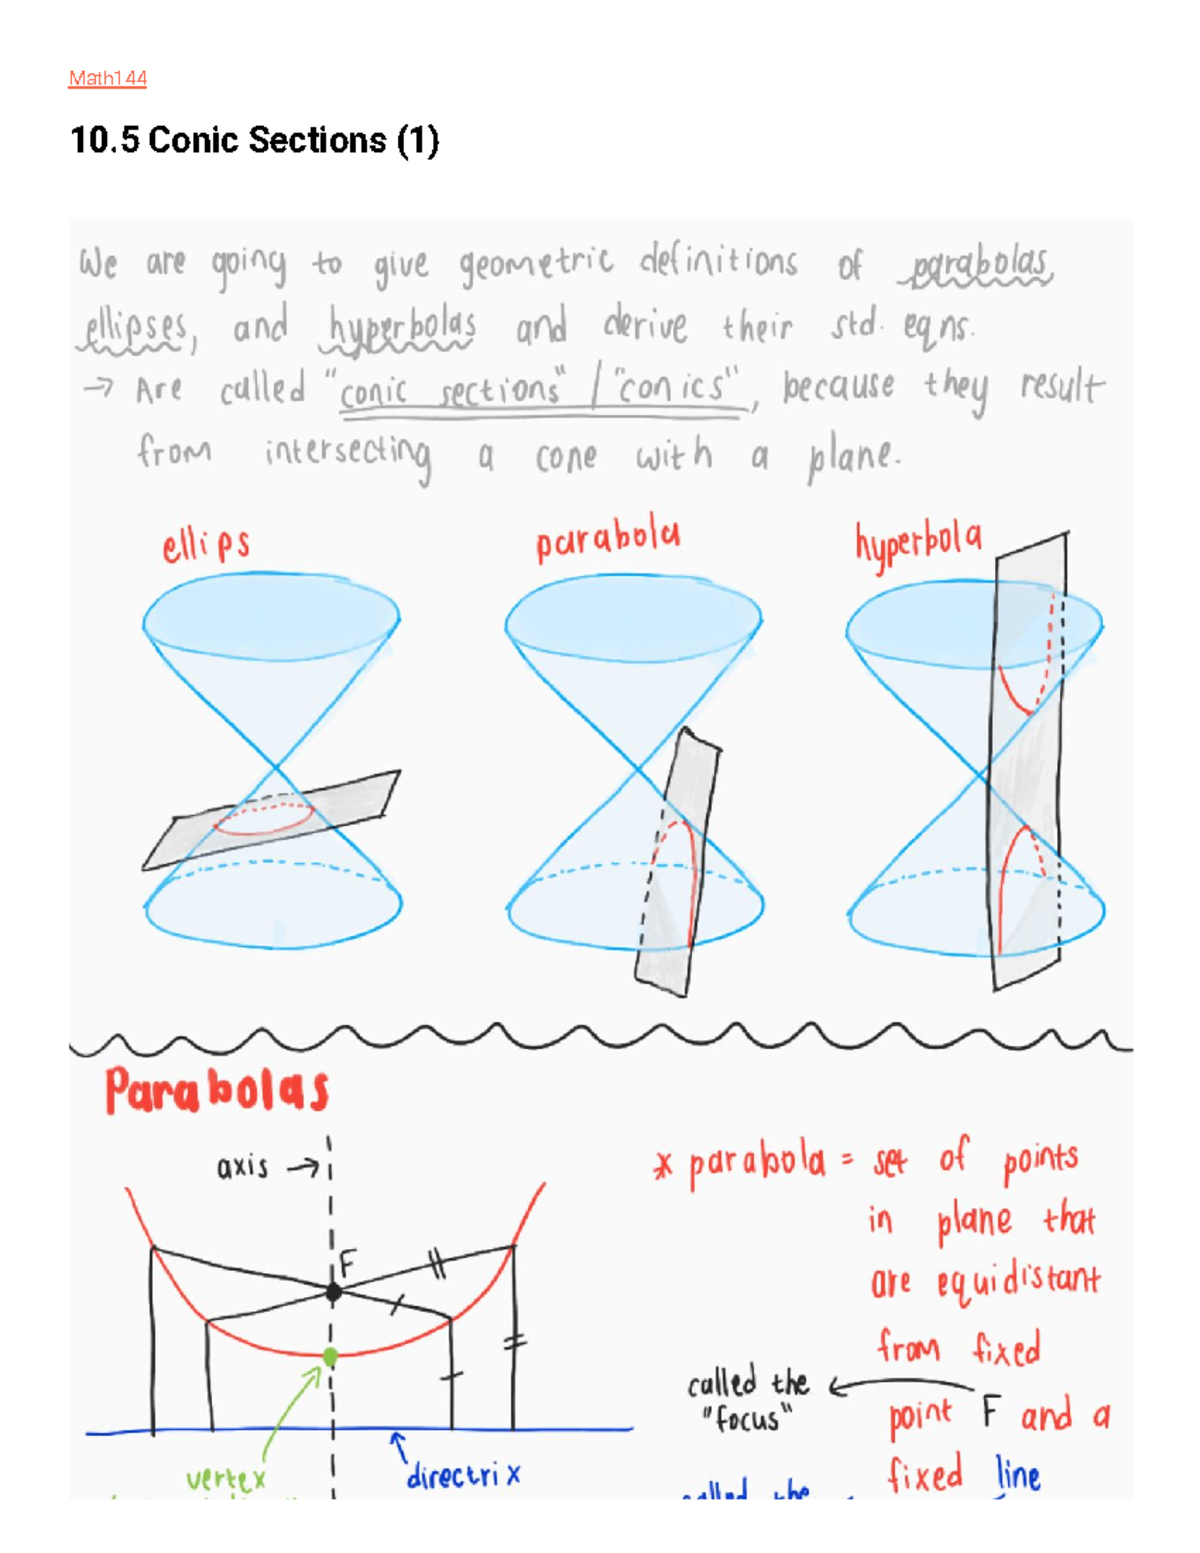 Math144
10.5 Conic Sections (1)
We are going to give geometric definitions of parabolas,
ellipses, and hyperbolas and derive their std. eqns.
→ Are called "conic sections" / "conics", because they result
from intersecting a cone with a plane.
ellips
parabola
hyperbola
Parabolas
axis →
F
vertex
directrix
* parabola = set of points
in plane that
are equidistant
from fixed
point F and a
fixed line
called the
"focus"
called the